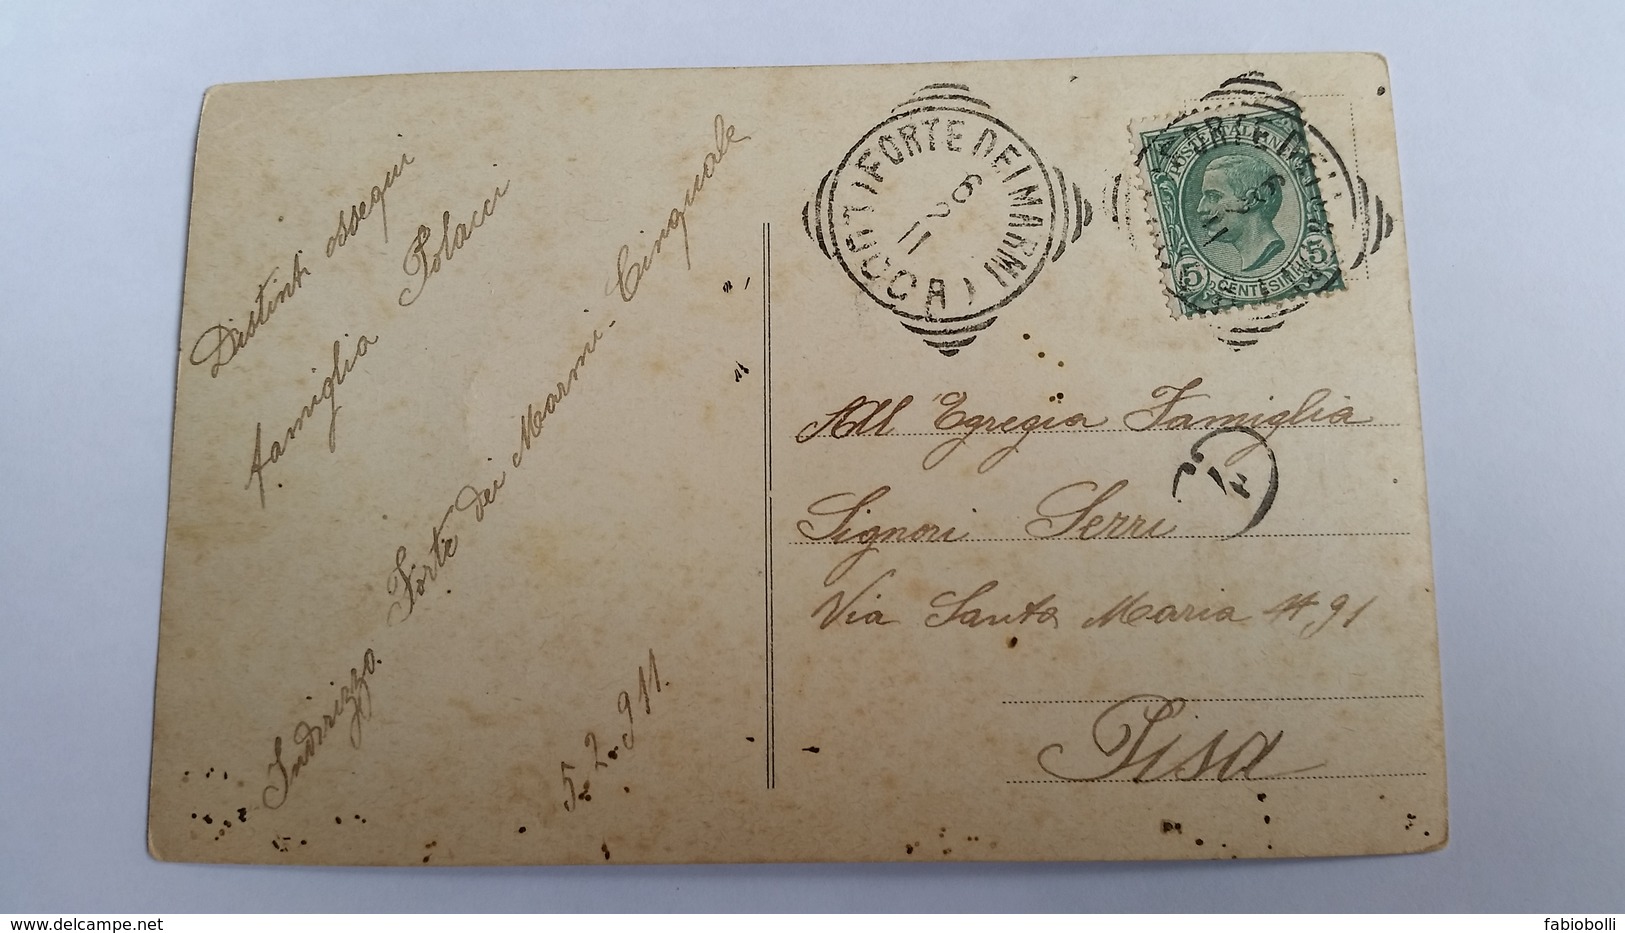 Distinti ossequi
famiglia Polacci
Indirizzo. Forte dei Marmi - Cinquale
5-2-911.
FORTE DEI MARMI
(LUCCA)
6
2
11
POSTE ITALIANE
5 CENTESIMI 5
All Egregia Famiglia
Signori Serri
Via Santa Maria N, 91
Pisa
delcampe.net
fabiobolli